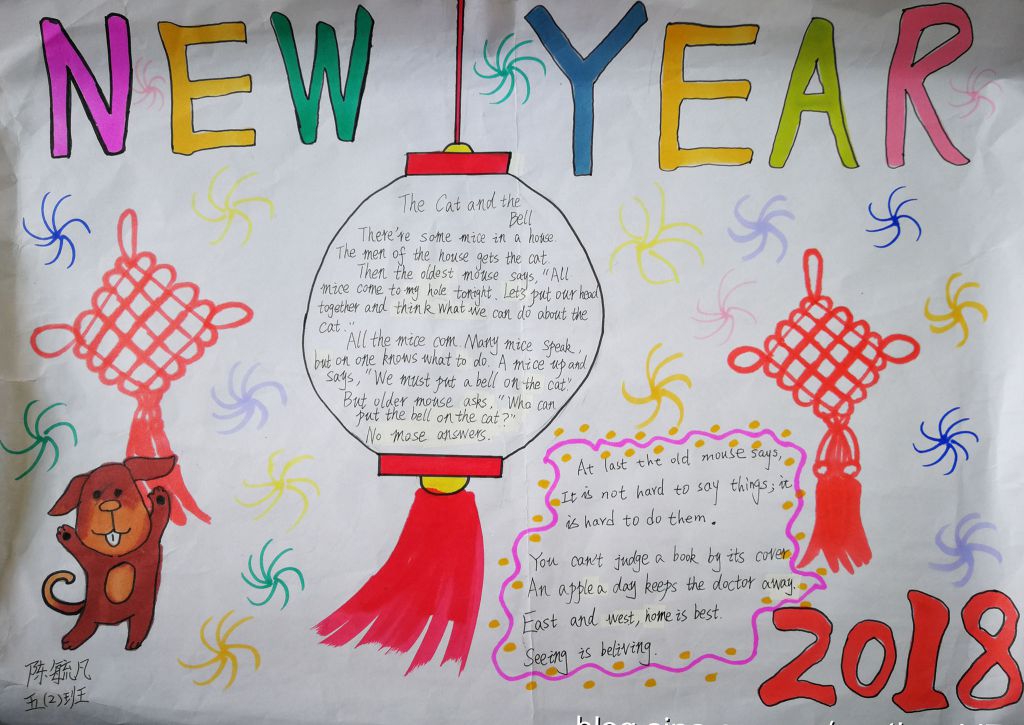 NEW YEAR
The Cat and the
Bell
There're some mice in a house.
The men of the house gets the cat.
Then the oldest mouse says, "All
mice come to my hole tonight. Let's put our head
together and think what we can do about the
cat."
All the mice com. Many mice speak,
but on one knows what to do. A mice up and
says, "We must put a bell on the cat."
But older mouse asks, "Who can
put the bell on the cat?"
No mose answers.
At last the old mouse says,
It is not hard to say things; it
is hard to do them.
You can't judge a book by its cover
An apple a day keeps the doctor away.
East and west, home is best.
Seeing is beliving.
2018
陈毓凡
五(2)班